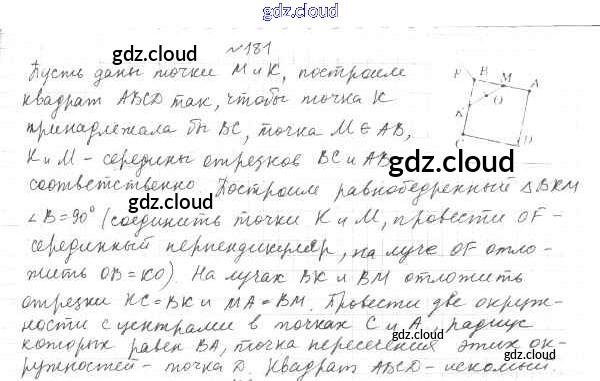 gdz.cloud
№ 181
Пусть даны точки M и K, построим
квадрат ABCD так, чтобы точка K
принадлежала бы BC, точка M ∈ AB,
K и M - середины отрезков BC и AB
соответственно. Построим равнобедренный △BKM
∠B = 90° (соединить точки K и M, провести OF -
серединный перпендикуляр, на луче OF отло-
жить OB = KO). На лучах BK и BM отложить
отрезки KC = BK и MA = BM. Провести две окруж-
ности с центрами в точках C и A, радиус
которых равен BA, точка пересечения этих ок-
ружностей - точка D. Квадрат ABCD - искомый.
F B M A
O
K
C D
gdz.cloud
gdz.cloud
gdz.cloud
gdz.cloud
gdz.cloud
gdz.cloud
gdz.cloud
gdz.cloud